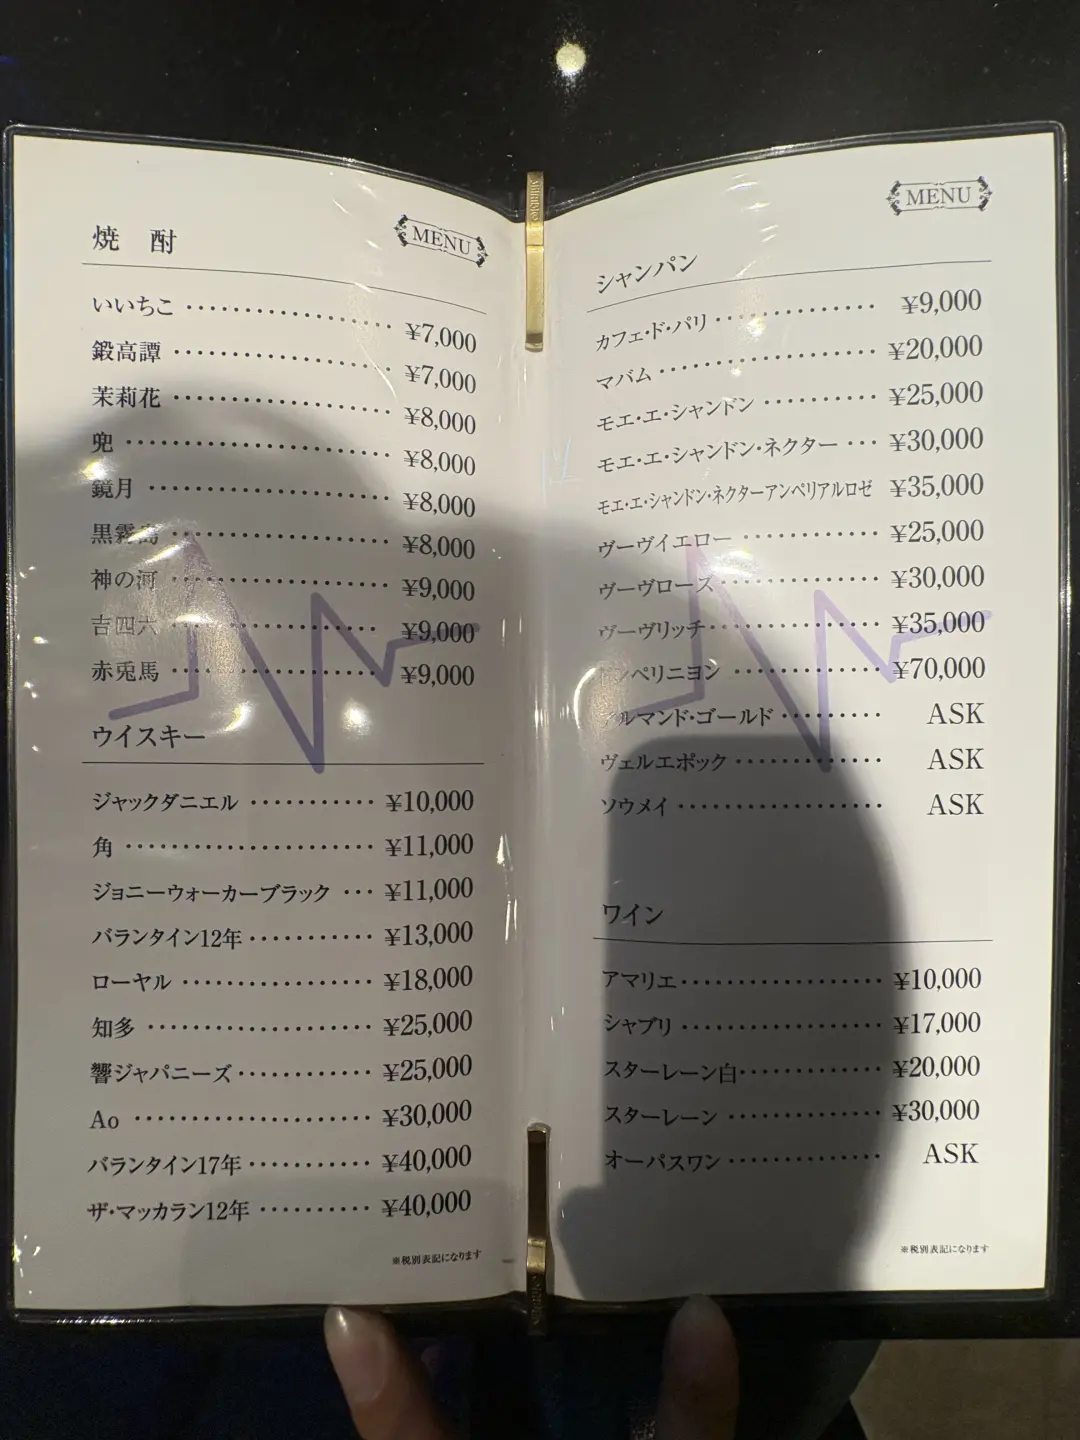 MENU
焼 酎
いいちこ ¥7,000
鍛高譚 ¥7,000
茉莉花 ¥8,000
兜 ¥8,000
鏡月 ¥8,000
黒霧島 ¥8,000
神の河 ¥9,000
吉四六 ¥9,000
赤兎馬 ¥9,000
ウイスキー
ジャックダニエル ¥10,000
角 ¥11,000
ジョニーウォーカーブラック ¥11,000
バランタイン12年 ¥13,000
ローヤル ¥18,000
知多 ¥25,000
響ジャパニーズ ¥25,000
Ao ¥30,000
バランタイン17年 ¥40,000
ザ・マッカラン12年 ¥40,000
※税別表記になります
MENU
シャンパン
カフェ・ド・パリ ¥9,000
マバム ¥20,000
モエ・エ・シャンドン ¥25,000
モエ・エ・シャンドン・ネクター ¥30,000
モエ・エ・シャンドン・ネクターアンペリアルロゼ ¥35,000
ヴーヴイエロー ¥25,000
ヴーヴローズ ¥30,000
ヴーヴリッチ ¥35,000
ドンペリニヨン ¥70,000
アルマンド・ゴールド ASK
ヴェルエポック ASK
ソウメイ ASK
ワイン
アマリエ ¥10,000
シャブリ ¥17,000
スターレーン白 ¥20,000
スターレーン ¥30,000
オーパスワン ASK
※税別表記になります